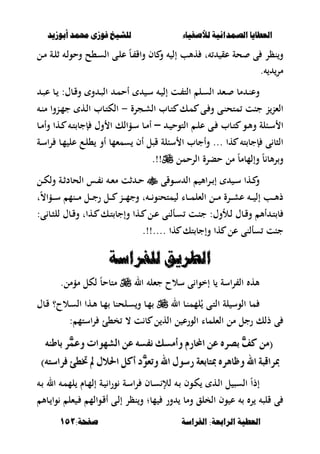 العطايا الصمدانية للأصفياء للشيخ فوزى محمد أبوزيد
وينظر فى صحة عقيدته، فذهب إليه وكان واقفاً على السطح وحوله ثلة من
مريديه.
وعندما صعد السلم التفت إليه سيدى أحمد البدوى وقال: يا عبد
العزيز جئت تمتحننى وفى كمك كتاب الشجرة – الكتاب الذى جهزوا منه
الأسئلة وهو كتاب فى علم التوحيد – أما سؤالك الأول فإجابته كذا وأما
الثانى فإجابته كذا ... وأجاب الأسئلة قبل أن يسمعها أو يطلع عليها فراسة
وبرهاناً وإلهاماً من حضرة الرحمن ﷻ!!.
وكذا سيدى إبراهيم الدسوقى حدثت معه نفس الحادثة ولكن
ذهب إليه عشرة من العلماء ليمتحنونه، وجهز كل رجل منهم سؤالاً،
فابتدأهم وقال للأول: جئت تسألنى عن كذا وإجابتك كذا، وقال للثانى:
جئت تسألنى عن كذا وإجابتك كذا ....!!.
الطريق للفراسة
هذه الفراسة يا إخوانى سلاح جعله الله ﷻ متاحاً لكل مؤمن.
فما الوسيلة التى يُلهمنا الله ﷻ بها ويسلحنا بها هذا السلاح؟ قال
فى ذلك رجل من العلماء الورعين الذين كانت لا تخطئ فراستهم:
(من كفَّ بصره عن المحارم وأمسك نفسه عن الشهوات وعمَّر باطنه
بمراقبة الله وظاهره بمتابعة رسول الله وتعوَّد أكل الحلال لم تخطئ فراسته)
إذاً السبيل الذى يكون به للإنسان فراسة نورانية إلهام يلهمه الله به
فى قلبه يره به عيون الخلق وما يدور فيها؛ وينظر إلى أقوالهم فيعلم نواياهم
العطية الرابعة: الفراسة صفحة:١٥٢